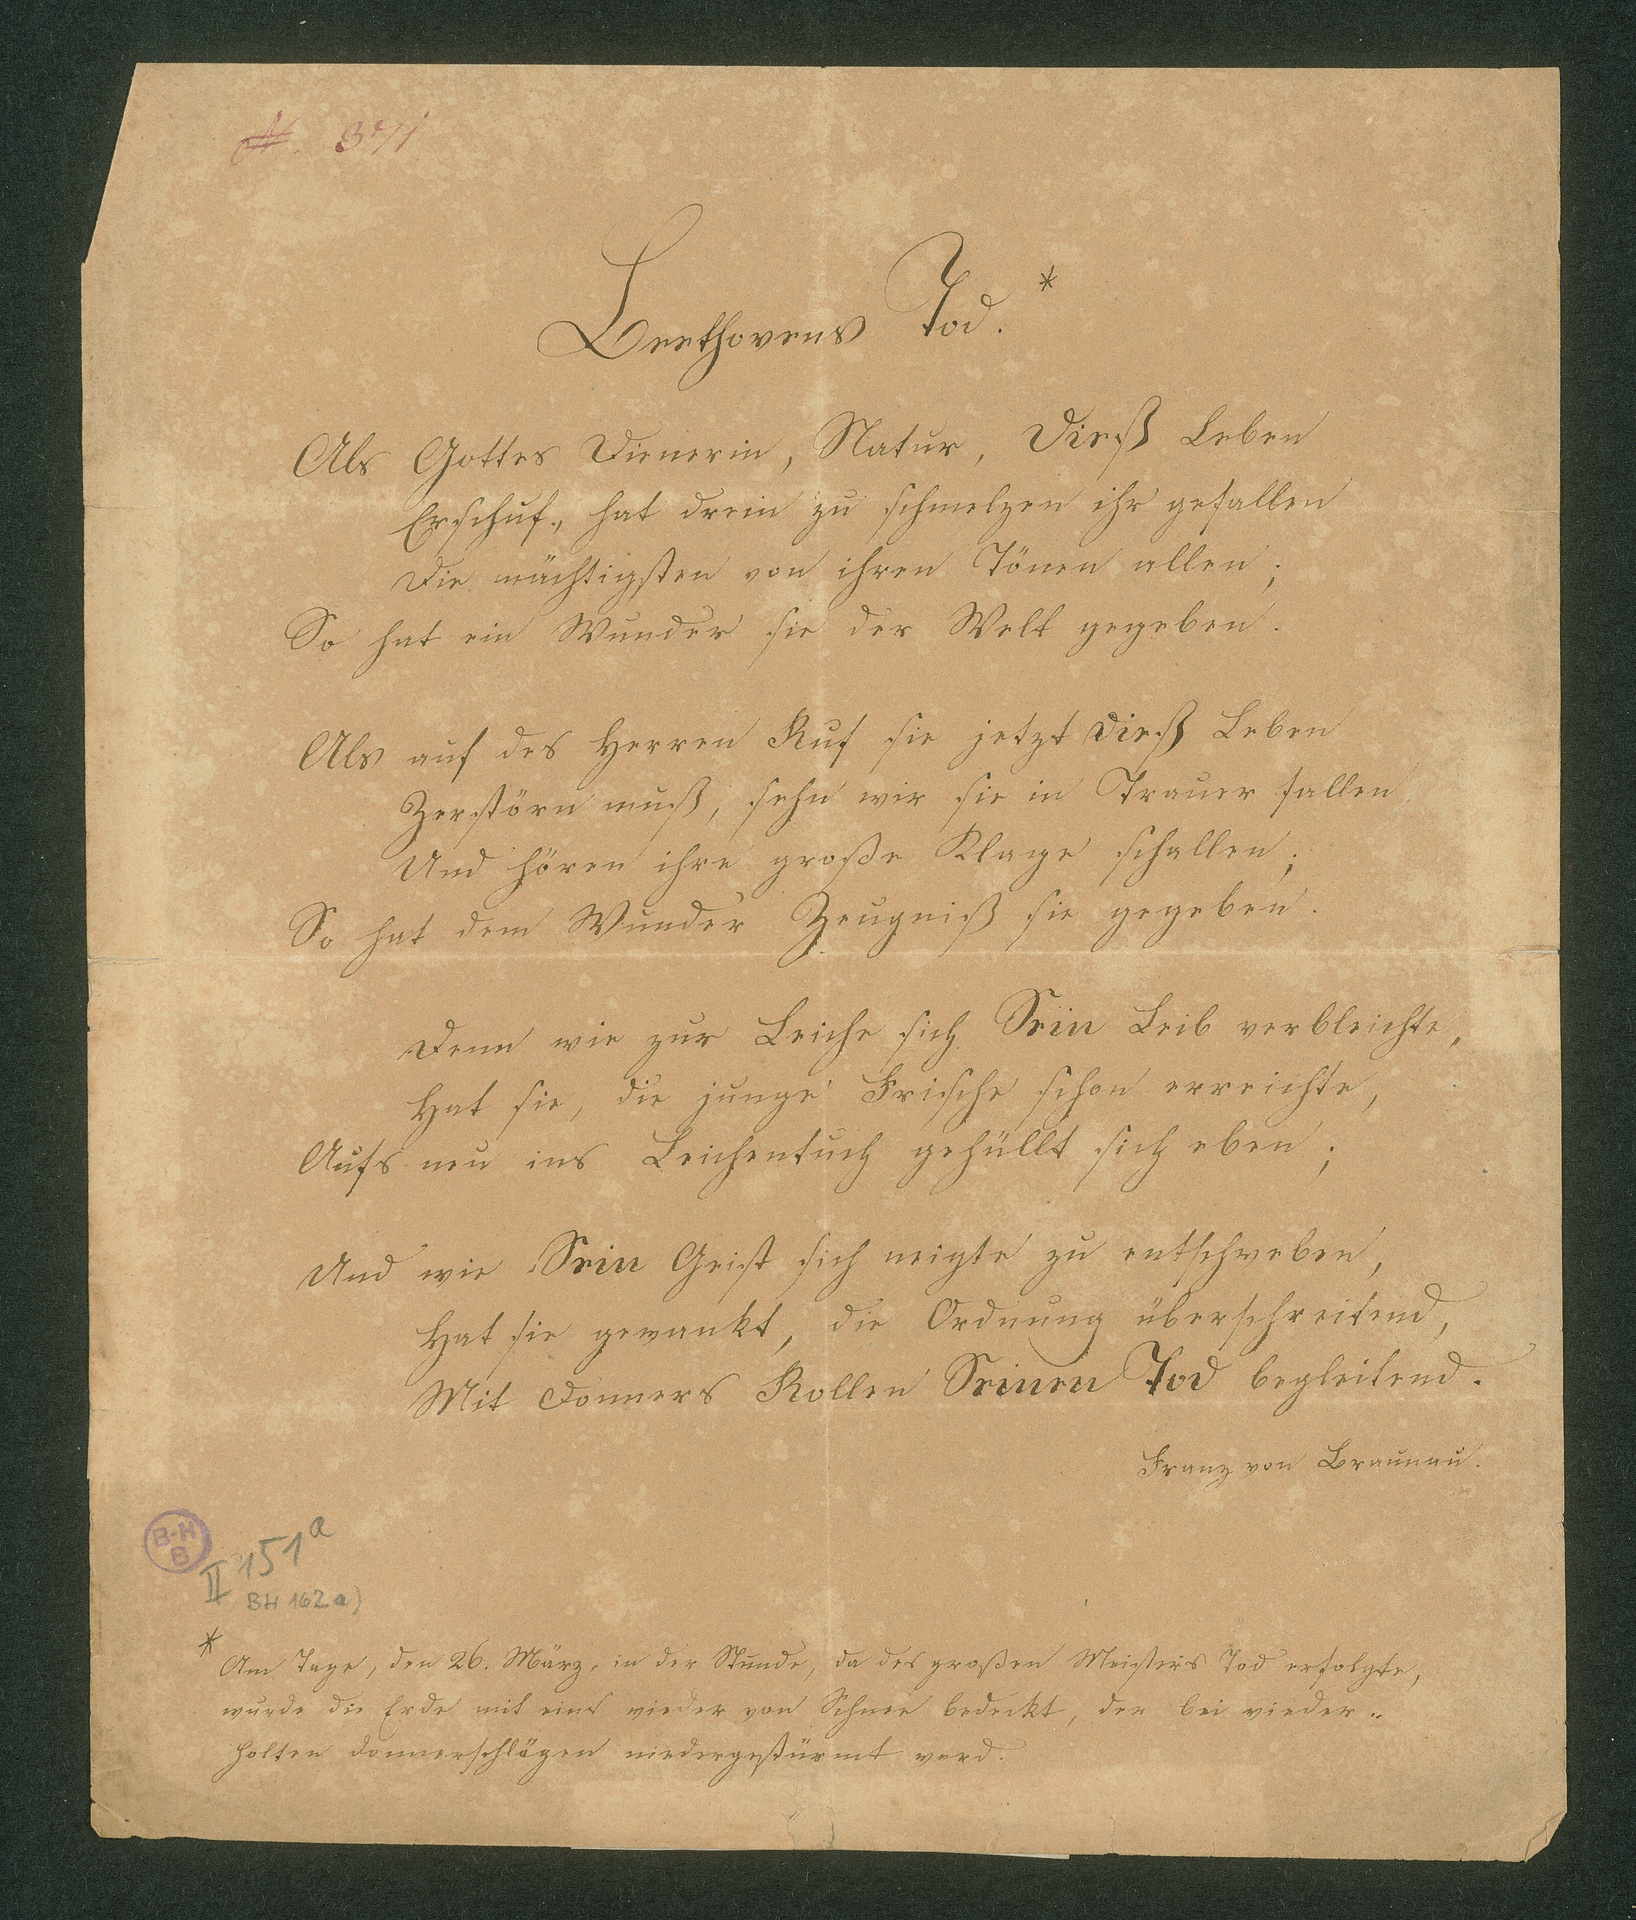 Beethovens Tod.*
Als Gottes Dienerin, Natur, Dieß Leben
Erschuf, hat drein zu schmelzen ihr gefallen
Die mächtigsten von ihren Tönen allen;
So hat ein Wunder sie der Welt gegeben.
Als auf des Herren Ruf sie jetzt Dieß Leben
Zerstörn muß, sehn wir sie in Trauer fallen
Und hören ihre große Klage schallen;
So hat dem Wunder Zeugniß sie gegeben.
Denn wie zur Leiche sich Sein Leib verbleichte,
Hat sie, die junge Frische schon erreichte,
Aufs neu ins Leichentuch gehüllt sich eben;
Und wie Sein Geist sich neigte zu entschweben,
Hat sie gewankt, die Ordnung überschreitend,
Mit Donners Rollen Seinen Tod begleitend.
Franz von Braunau.
B-H
B
II 151a
BH 162a)
* Am Tage, den 26. März, in der Stunde, da des großen Meisters Tod erfolgte,
wurde die Erde mit eins wieder von Schnee bedeckt, der bei wieder-
holten Donnerschlägen niedergestürmt ward.